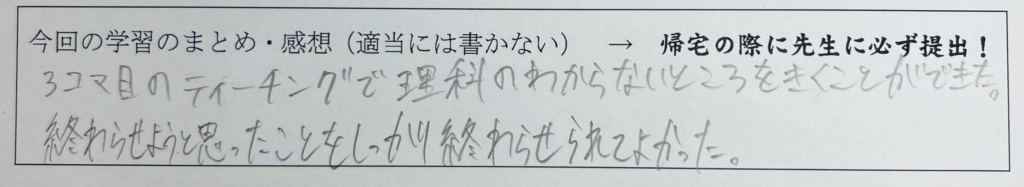 今回の学習のまとめ・感想（適当には書かない） → 帰宅の際に先生に必ず提出！
3コマ目のティーチングで理科のわからないところをきくことができた。
終わらせようと思ったことをしっかり終わらせられてよかった。